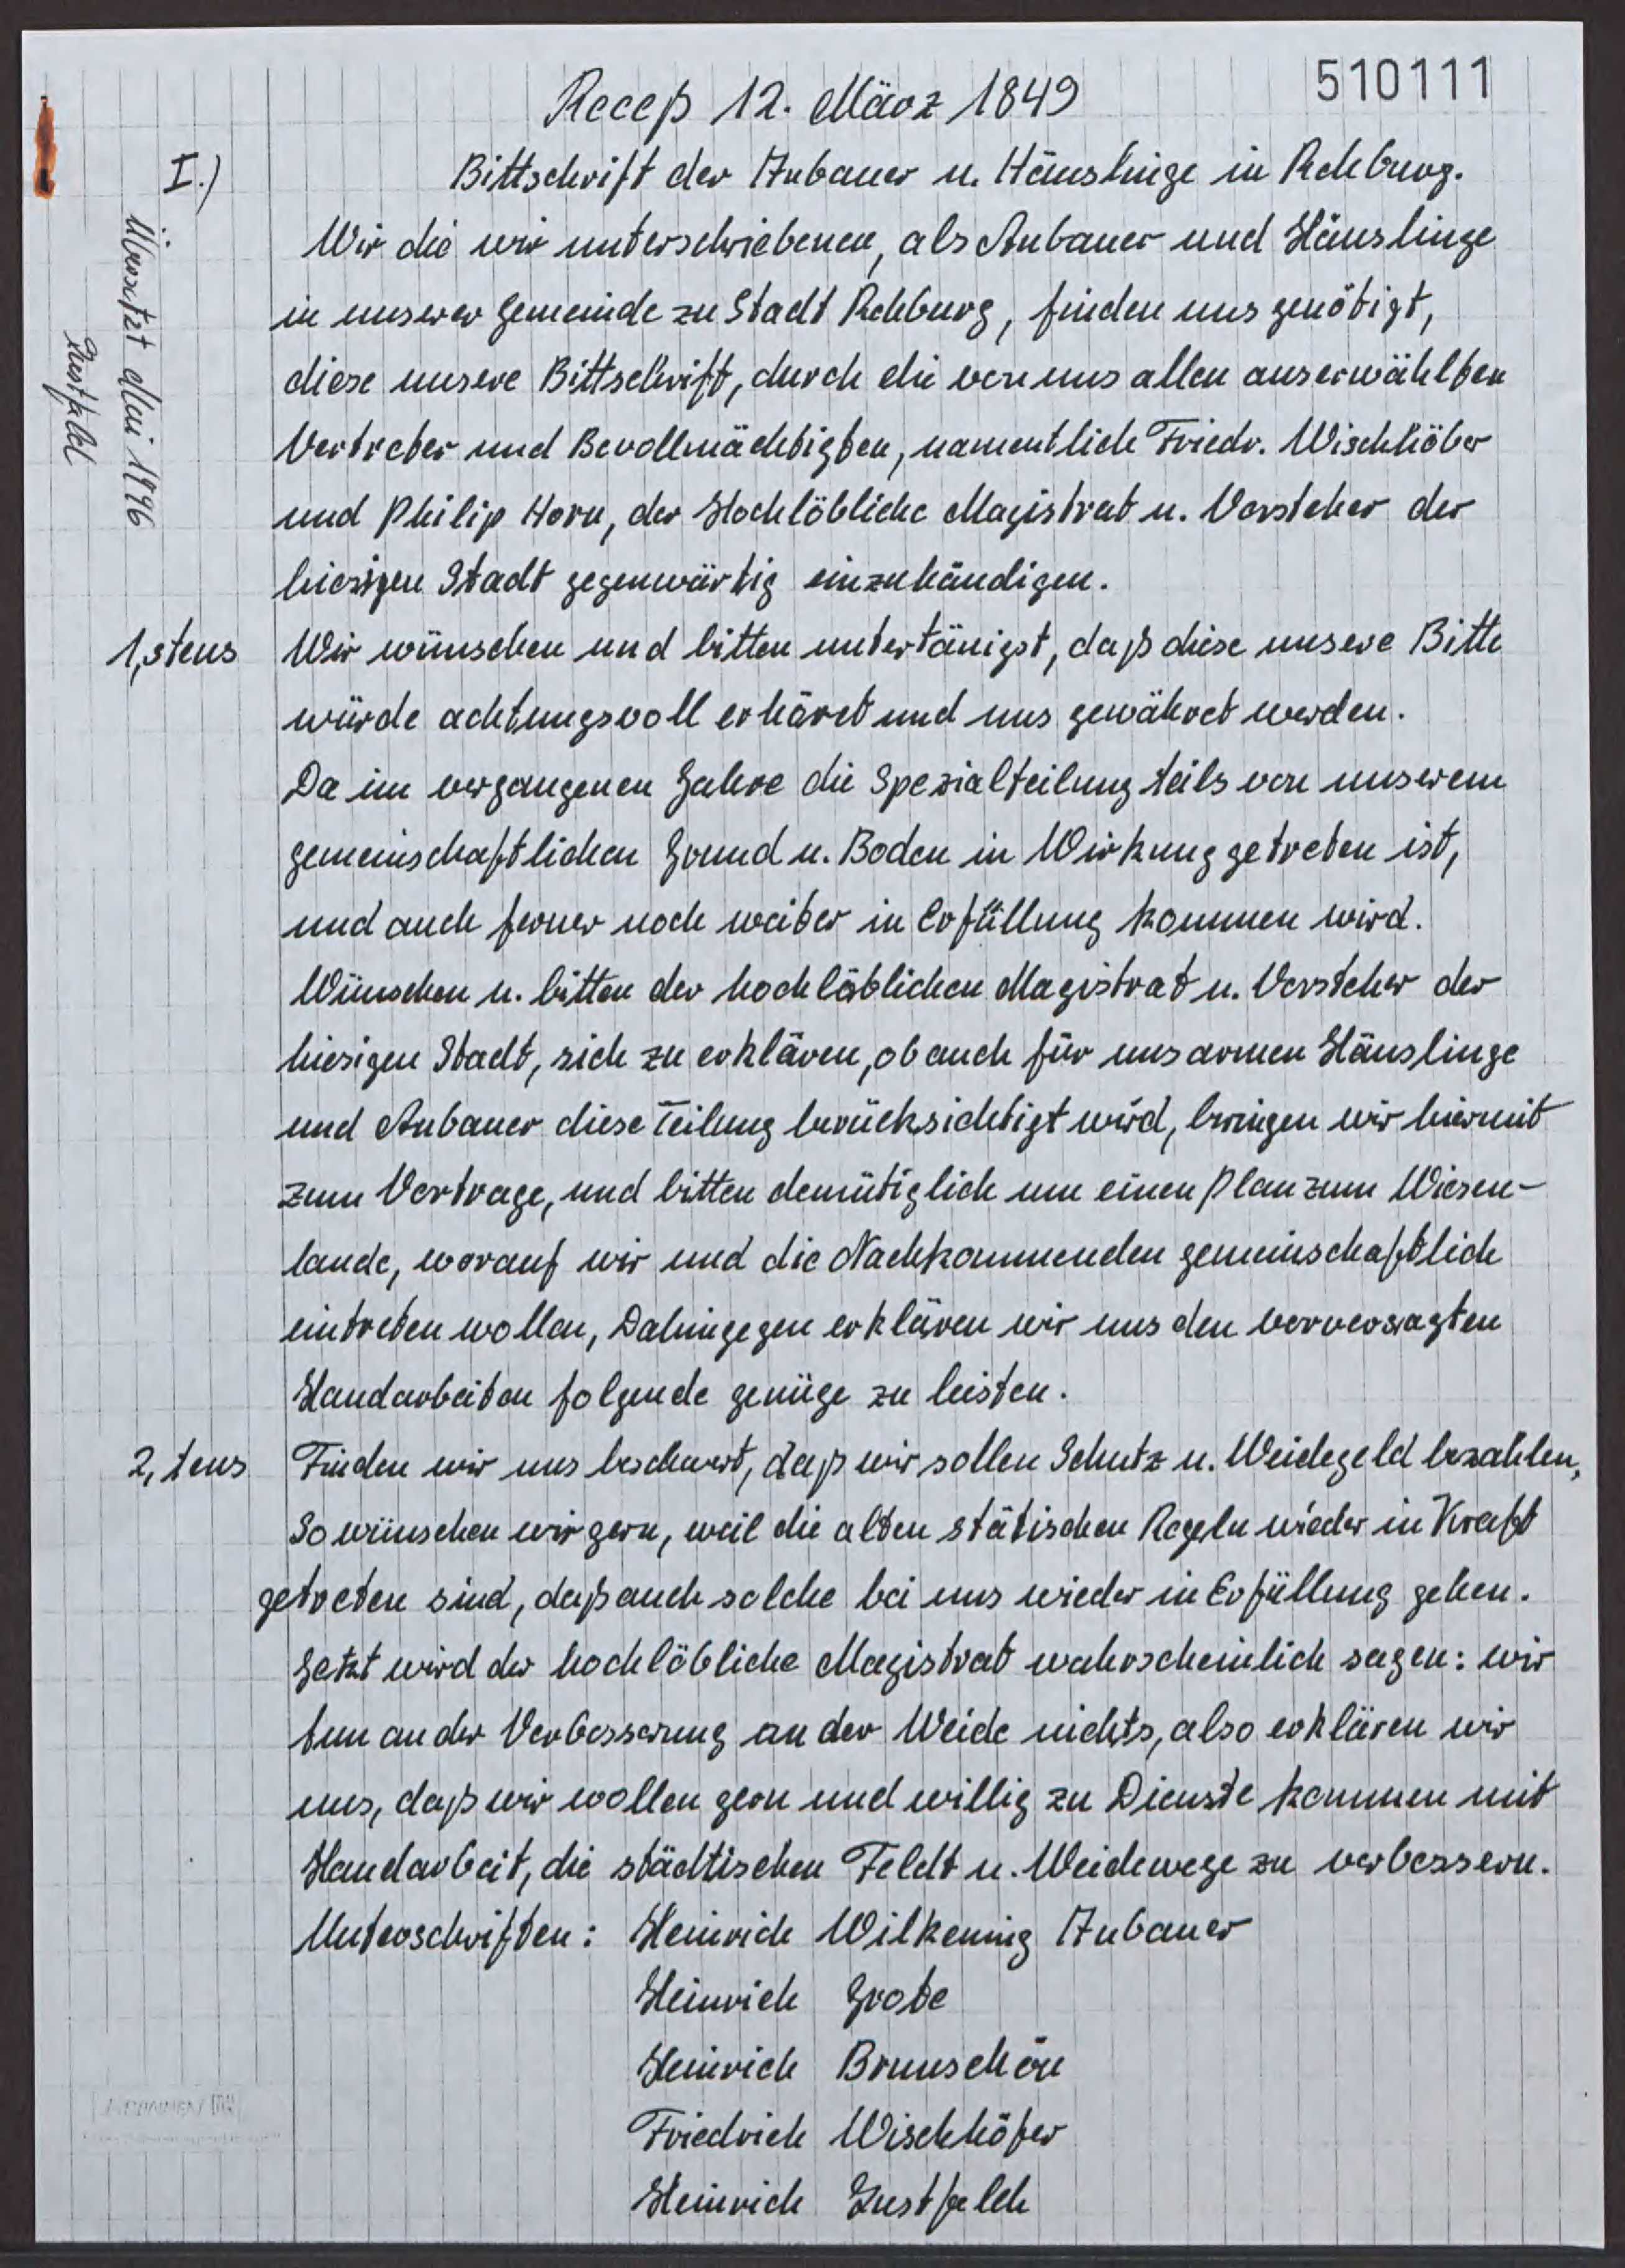 510111
Receß 12. März 1849
I.) Bittschrift der Anbauer u. Häuslinge in Rehburg.
Wir die wir unterschriebenen, als Anbauer und Häuslinge
in unserer Gemeinde zu Stadt Rehburg, finden uns genötigt,
diese unsere Bittschrift, durch die von uns allen auserwählten
Vertreter und Bevollmächtigten, namentlich Friedr. Wischhöber
und Philip Horn, der Hochlöbliche Magistrat u. Vorsteher der
hiesigen Stadt gegenwärtig einzuhändigen.
1,stens Wir wünschen und bitten untertänigst, daß diese unsere Bitte
würde achtungsvoll erhöret und uns gewähret werden.
Da im vergangenen Jahre die Spezialteilung teils von unserem
gemeinschaftlichen Grund u. Boden in Wirkung getreten ist,
und auch ferner noch weiter in Erfüllung kommen wird.
Wünschen u. bitten der hochlöblichen Magistrat u. Vorsteher der
hiesigen Stadt, sich zu erklären, ob auch für uns armen Häuslinge
und Anbauer diese Teilung berücksichtigt wird, bringen wir hiermit
zum Vortrage, und bitten demütiglich um einen Plan zum Wiesen-
lande, worauf wir und die Nachkommenden gemeinschaftlich
eintreten wollen, Dahingegen erklären wir uns den
Handarbeiten folgende genüge zu leisten.
2,tens Finden wir uns beschwert, daß wir sollen Schutz u. Weidegeld bezahlen,
So wünschen wir gern, weil die alten stätischen Regeln wieder in Kraft
getreten sind, daß auch solche bei uns wieder in Erfüllung gehen.
Jetzt wird der hochlöbliche Magistrat wahrscheinlich sagen: wir
tun an der Verbesserung an der Weide nichts, also erklären wir
uns, daß wir wollen gern und willig zu Dienste kommen mit
Handarbeit, die städtischen Feldt u. Weidewege zu verbessern.
Unterschriften: Heinrich Wilkening Anbauer
Heinrich Grote
Heinrich Brunschön
Friedrich Wischhöfer
Heinrich Lustfeldt
Übersetzt Mai 1996